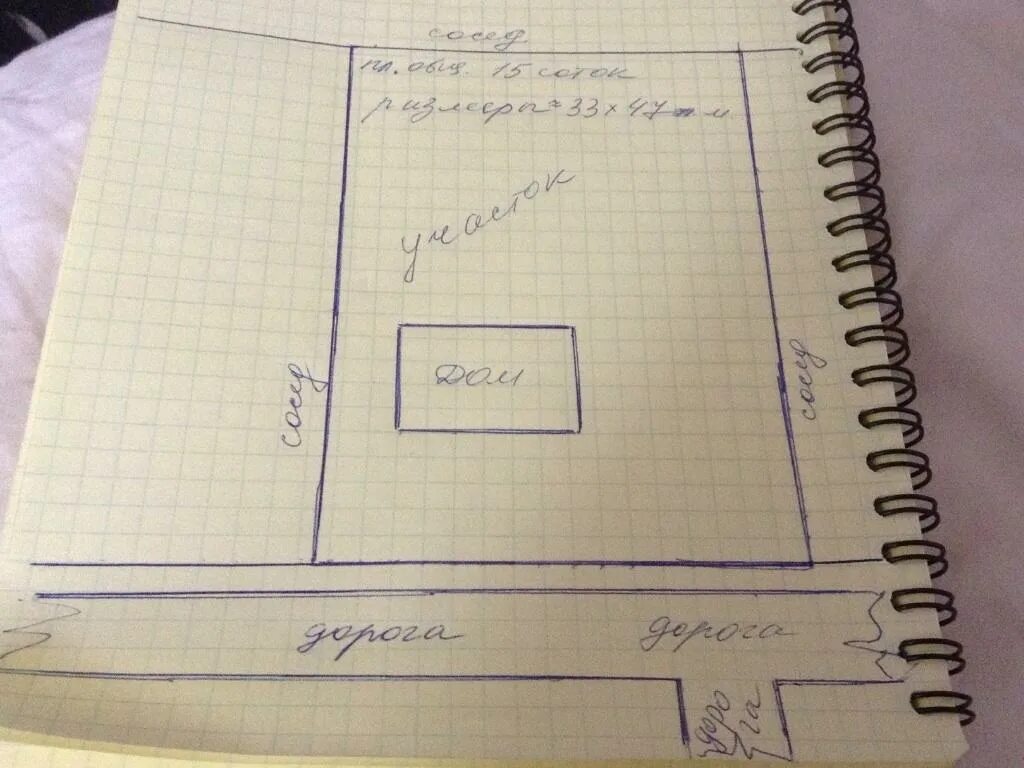 сосед
пл. общ. 15 соток
размеры ≈ 33 х 47 м
участок
дом
сосед
сосед
дорога
дорога
доро
га